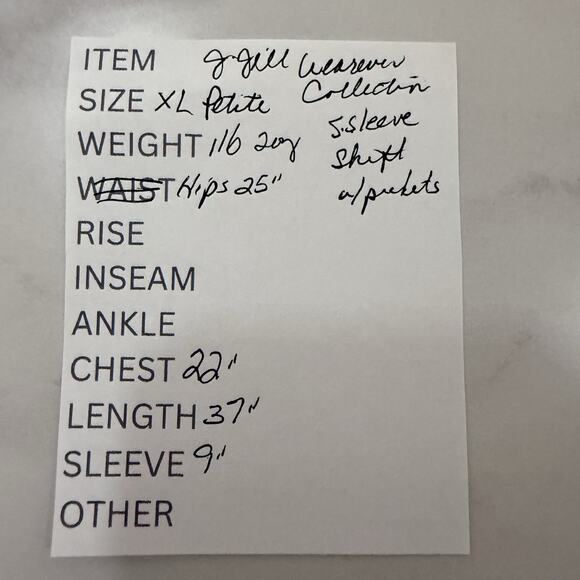 ITEM J.Jill Wearever
Collection
SIZE XL Petite
S.Sleeve
WEIGHT 1lb 2oz
Shift
WAIST Hips 25"
w/pockets
RISE
INSEAM
ANKLE
CHEST 22"
LENGTH 37"
SLEEVE 9"
OTHER